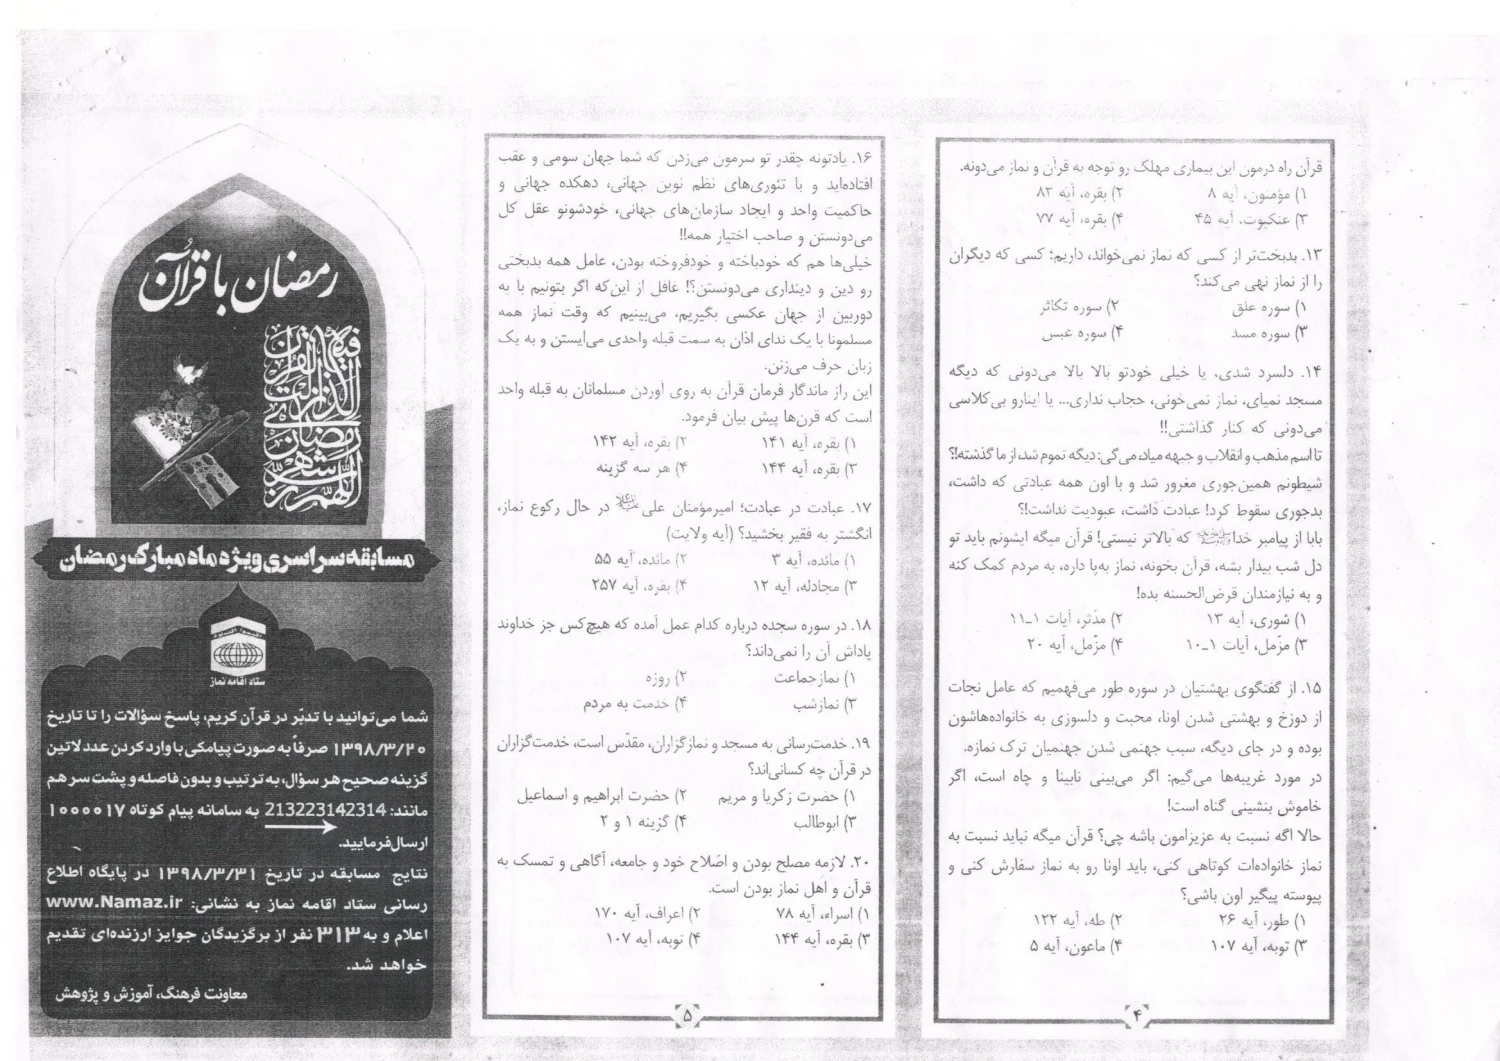 قرآن راه درمون این بیماری مهلک رو توجه به قرآن و نماز می‌دونه.
۱) مؤمنون، آیه ۸ ۲) بقره، آیه ۸۳
۳) عنکبوت، آیه ۴۵ ۴) بقره، آیه ۷۷
۱۳. بدبخت‌تر از کسی که نماز نمی‌خواند، داریم؛ کسی که دیگران
را از نماز نهی می‌کند؟
۱) سوره علق ۲) سوره تکاثر
۳) سوره مسد ۴) سوره عبس
۱۴. دلسرد شدی، یا خیلی خودتو بالا بالا می‌دونی که دیگه
مسجد نمیای، نماز نمی‌خونی، حجاب نداری... یا اینارو بی‌کلاسی
می‌دونی که کنار گذاشتی!!
تا اسم مذهب و انقلاب و جبهه میاد، می‌گی: دیگه تموم شد، از ما گذشته!؟
شیطونم همین‌جوری مغرور شد و با اون همه عبادتی که داشت،
بدجوری سقوط کرد! عبادت داشت، عبودیت نداشت!؟
بابا از پیامبر خدا که بالاتر نیستی! قرآن میگه ایشونم باید تو
دل شب بیدار بشه، قرآن بخونه، نماز به‌پا داره، به مردم کمک کنه
و به نیازمندان قرض‌الحسنه بده!
۱) شوری، آیه ۱۳ ۲) مدّثر، آیات ۱ـ۱۱
۳) مزّمل، آیات ۱ـ۱۰ ۴) مزّمل، آیه ۲۰
۱۵. از گفتگوی بهشتیان در سوره طور می‌فهمیم که عامل نجات
از دوزخ و بهشتی شدن اونا، محبت و دلسوزی به خانواده‌هاشون
بوده و در جای دیگه، سبب جهنمی شدن جهنمیان ترک نمازه.
در مورد غریبه‌ها می‌گیم: اگر می‌بینی نابینا و چاه است، اگر
خاموش بنشینی گناه است!
حالا اگه نسبت به عزیزامون باشه چی؟ قرآن میگه نباید نسبت به
نماز خانواده‌ات کوتاهی کنی، باید اونا رو به نماز سفارش کنی و
پیوسته پیگیر اون باشی؟
۱) طور، آیه ۲۶ ۲) طه، آیه ۱۲۲
۳) توبه، آیه ۱۰۷ ۴) ماعون، آیه ۵
۴
۱۶. یادتونه چقدر تو سرمون می‌زدن که شما جهان سومی و عقب
افتاده‌اید و با تئوری‌های نظم نوین جهانی، دهکده جهانی و
حاکمیت واحد و ایجاد سازمان‌های جهانی، خودشونو عقل کل
می‌دونستن و صاحب اختیار همه!!
خیلی‌ها هم که خودباخته و خودفروخته بودن، عامل همه بدبختی
رو دین و دینداری می‌دونستن؟! غافل از این‌که اگر بتونیم با یه
دوربین از جهان عکسی بگیریم، می‌بینیم که وقت نماز همه
مسلمونا با یک ندای اذان به سمت قبله واحدی می‌ایستن و به یک
زبان حرف می‌زنن.
این راز ماندگار فرمان قرآن به روی آوردن مسلمانان به قبله واحد
است که قرن‌ها پیش بیان فرمود.
۱) بقره، آیه ۱۴۱ ۲) بقره، آیه ۱۴۲
۳) بقره، آیه ۱۴۴ ۴) هر سه گزینه
۱۷. عبادت در عبادت؛ امیرمؤمنان علی در حال رکوع نماز،
انگشتر به فقیر بخشید؟ (آیه ولایت)
۱) مائده، آیه ۳ ۲) مائده، آیه ۵۵
۳) مجادله، آیه ۱۲ ۴) بقره، آیه ۲۵۷
۱۸. در سوره سجده درباره کدام عمل آمده که هیچ‌کس جز خداوند
پاداش آن را نمی‌داند؟
۱) نمازجماعت ۲) روزه
۳) نمازشب ۴) خدمت به مردم
۱۹. خدمت‌رسانی به مسجد و نمازگزاران، مقدّس است، خدمت‌گزاران
در قرآن چه کسانی‌اند؟
۱) حضرت زکریا و مریم ۲) حضرت ابراهیم و اسماعیل
۳) ابوطالب ۴) گزینه ۱ و ۲
۲۰. لازمه مصلح بودن و اصلاح خود و جامعه، آگاهی و تمسک به
قرآن و اهل نماز بودن است.
۱) اسراء، آیه ۷۸ ۲) اعراف، آیه ۱۷۰
۳) بقره، آیه ۱۴۴ ۴) توبه، آیه ۱۰۷
۵
رمضان با قرآن
مسابقه سراسری ویژه ماه مبارک رمضان
ستاد اقامه نماز
شما می‌توانید با تدبّر در قرآن کریم، پاسخ سؤالات را تا تاریخ
۱۳۹۸/۳/۲۰ صرفاً به صورت پیامکی با وارد کردن عدد لاتین
گزینه صحیح هر سؤال، به ترتیب و بدون فاصله و پشت سر هم
مانند: 213223142314 به سامانه پیام کوتاه ۱۰۰۰۰۱۷
ارسال فرمایید.
نتایج مسابقه در تاریخ ۱۳۹۸/۳/۳۱ در پایگاه اطلاع
رسانی ستاد اقامه نماز به نشانی: www.Namaz.ir
اعلام و به ۳۱۳ نفر از برگزیدگان جوایز ارزنده‌ای تقدیم
خواهد شد.
معاونت فرهنگ، آموزش و پژوهش